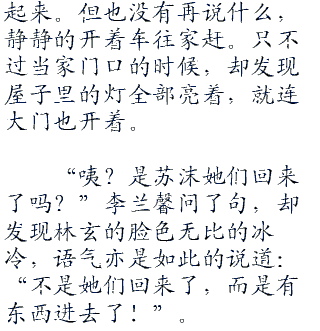 起来。但也没有再说什么，
静静的开着车往家赶。只不
过当家门口的时候，却发现
屋子里的灯全部亮着，就连
大门也开着。
“咦？是苏沫她们回来
了吗？”李兰馨问了句，却
发现林玄的脸色无比的冰
冷，语气亦是如此的说道：
“不是她们回来了，而是有
东西进去了！”。